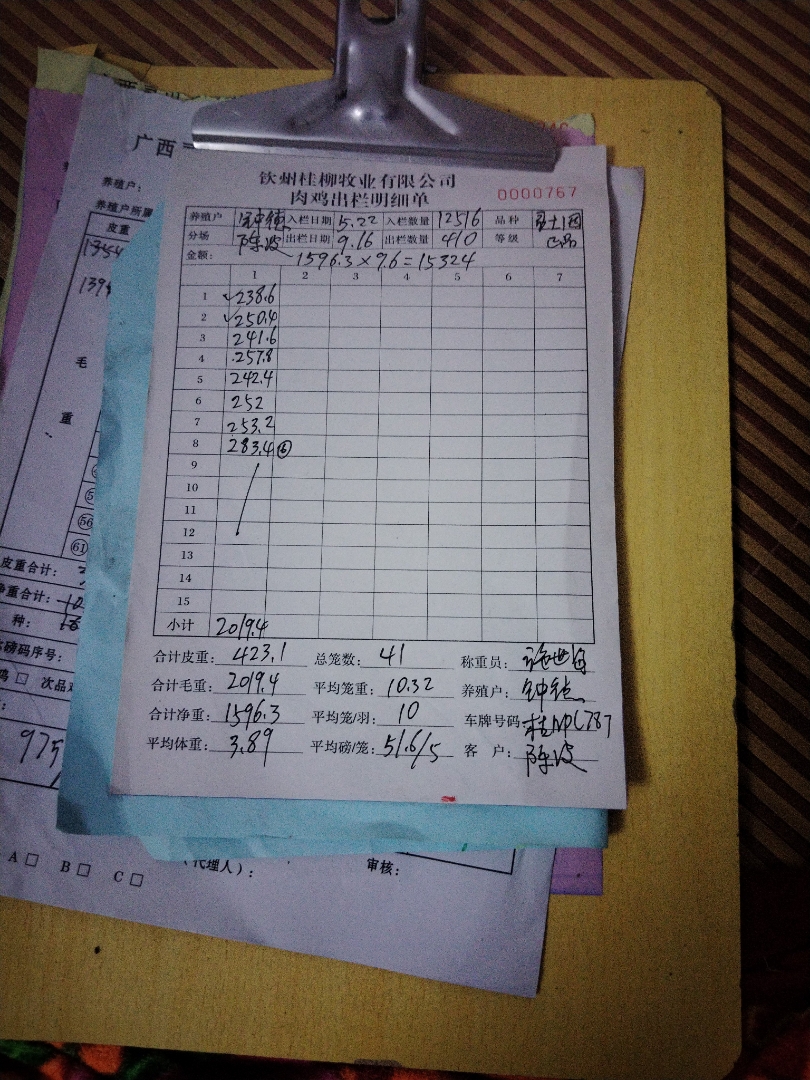 广西
养殖户：
养殖户所属
皮重
1354
139
毛
重
56
61
皮重合计：
净重合计：
种：
磅码序号：
鸡 □ 次品
975
A □ B □ C □
（代理人）：
审核：
钦州桂柳牧业有限公司
肉鸡出栏明细单
0000767
养殖户 入栏日期 5.22 入栏数量 12516 品种
分场 陈波 出栏日期 9.16 出栏数量 410 等级
金额： 1596.3×9.6=15324
1 2 3 4 5 6 7
1 √238.6
2 √250.4
3 241.6
4 257.8
5 242.4
6 252
7 253.2
8 283.4 ⑥
9
10
11
12
13
14
15
小计 2019.4
合计皮重： 423.1 总笼数： 41 称重员：
合计毛重： 2019.4 平均笼重： 10.32 养殖户：
合计净重： 1596.3 平均笼/羽： 10 车牌号码
平均体重： 3.89 平均磅/笼： 51.6/5 客 户： 陈波